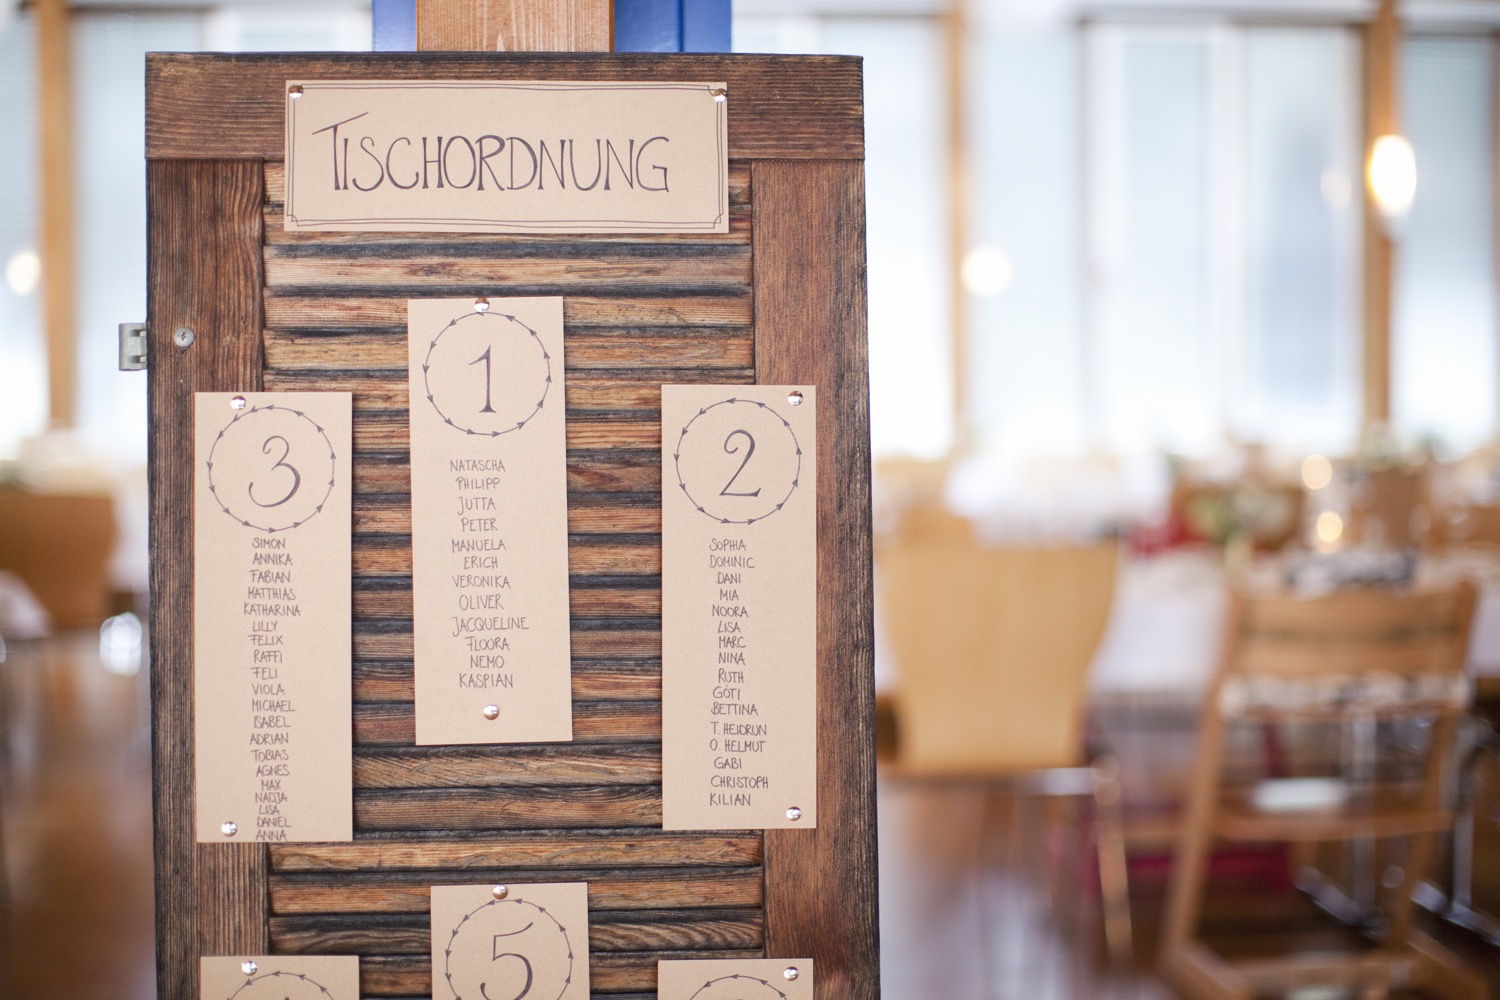 TISCHORDNUNG
1
NATASCHA
PHILIPP
JUTTA
PETER
MANUELA
ERICH
VERONIKA
OLIVER
JACQUELINE
FLOORA
NEMO
KASPIAN
3
SIMON
ANNIKA
FABIAN
MATTHIAS
KATHARINA
LILLY
FELIX
RAFFI
FELI
VIOLA
MICHAEL
ISABEL
ADRIAN
TOBIAS
AGNES
MAX
NADJA
LISA
DANIEL
ANNA
2
SOPHIA
DOMINIC
DANI
MIA
NOORA
LISA
MARC
NINA
RUTH
GÖTI
BETTINA
T. HEIDRUN
O. HELMUT
GABI
CHRISTOPH
KILIAN
5